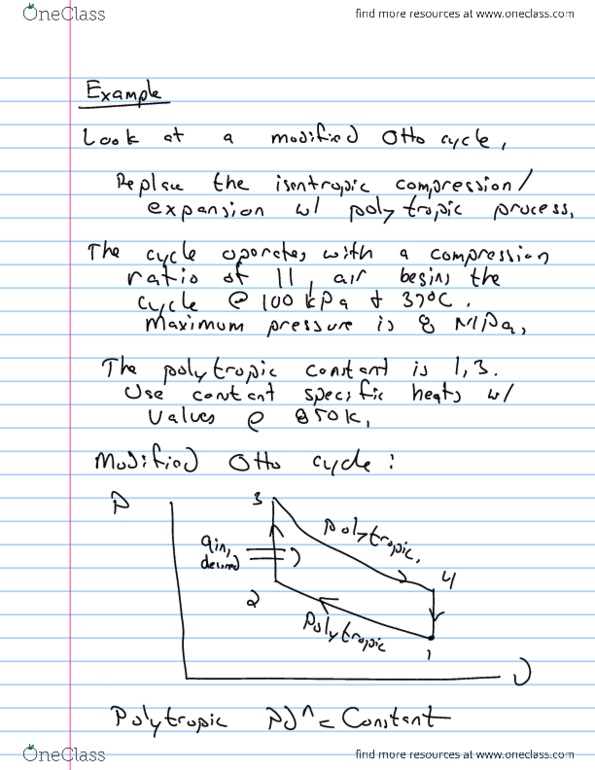 OneClass find more resources at www.oneclass.com
Example
Look at a modified Otto cycle,
Replace the isentropic compression/
expansion w/ polytropic process,
The cycle operates with a compression
ratio of 11, air begins the
cycle @ 100 kPa & 37°C.
Maximum pressure is 8 MPa,
The polytropic constant is 1,3.
Use constant specific heats w/
Values @ 850K,
Modified Otto cycle:
P
3
Polytropic,
qin,
desired
4
2
Polytropic
1
V
Polytropic PVⁿ = Constant
OneClass find more resources at www.oneclass.com